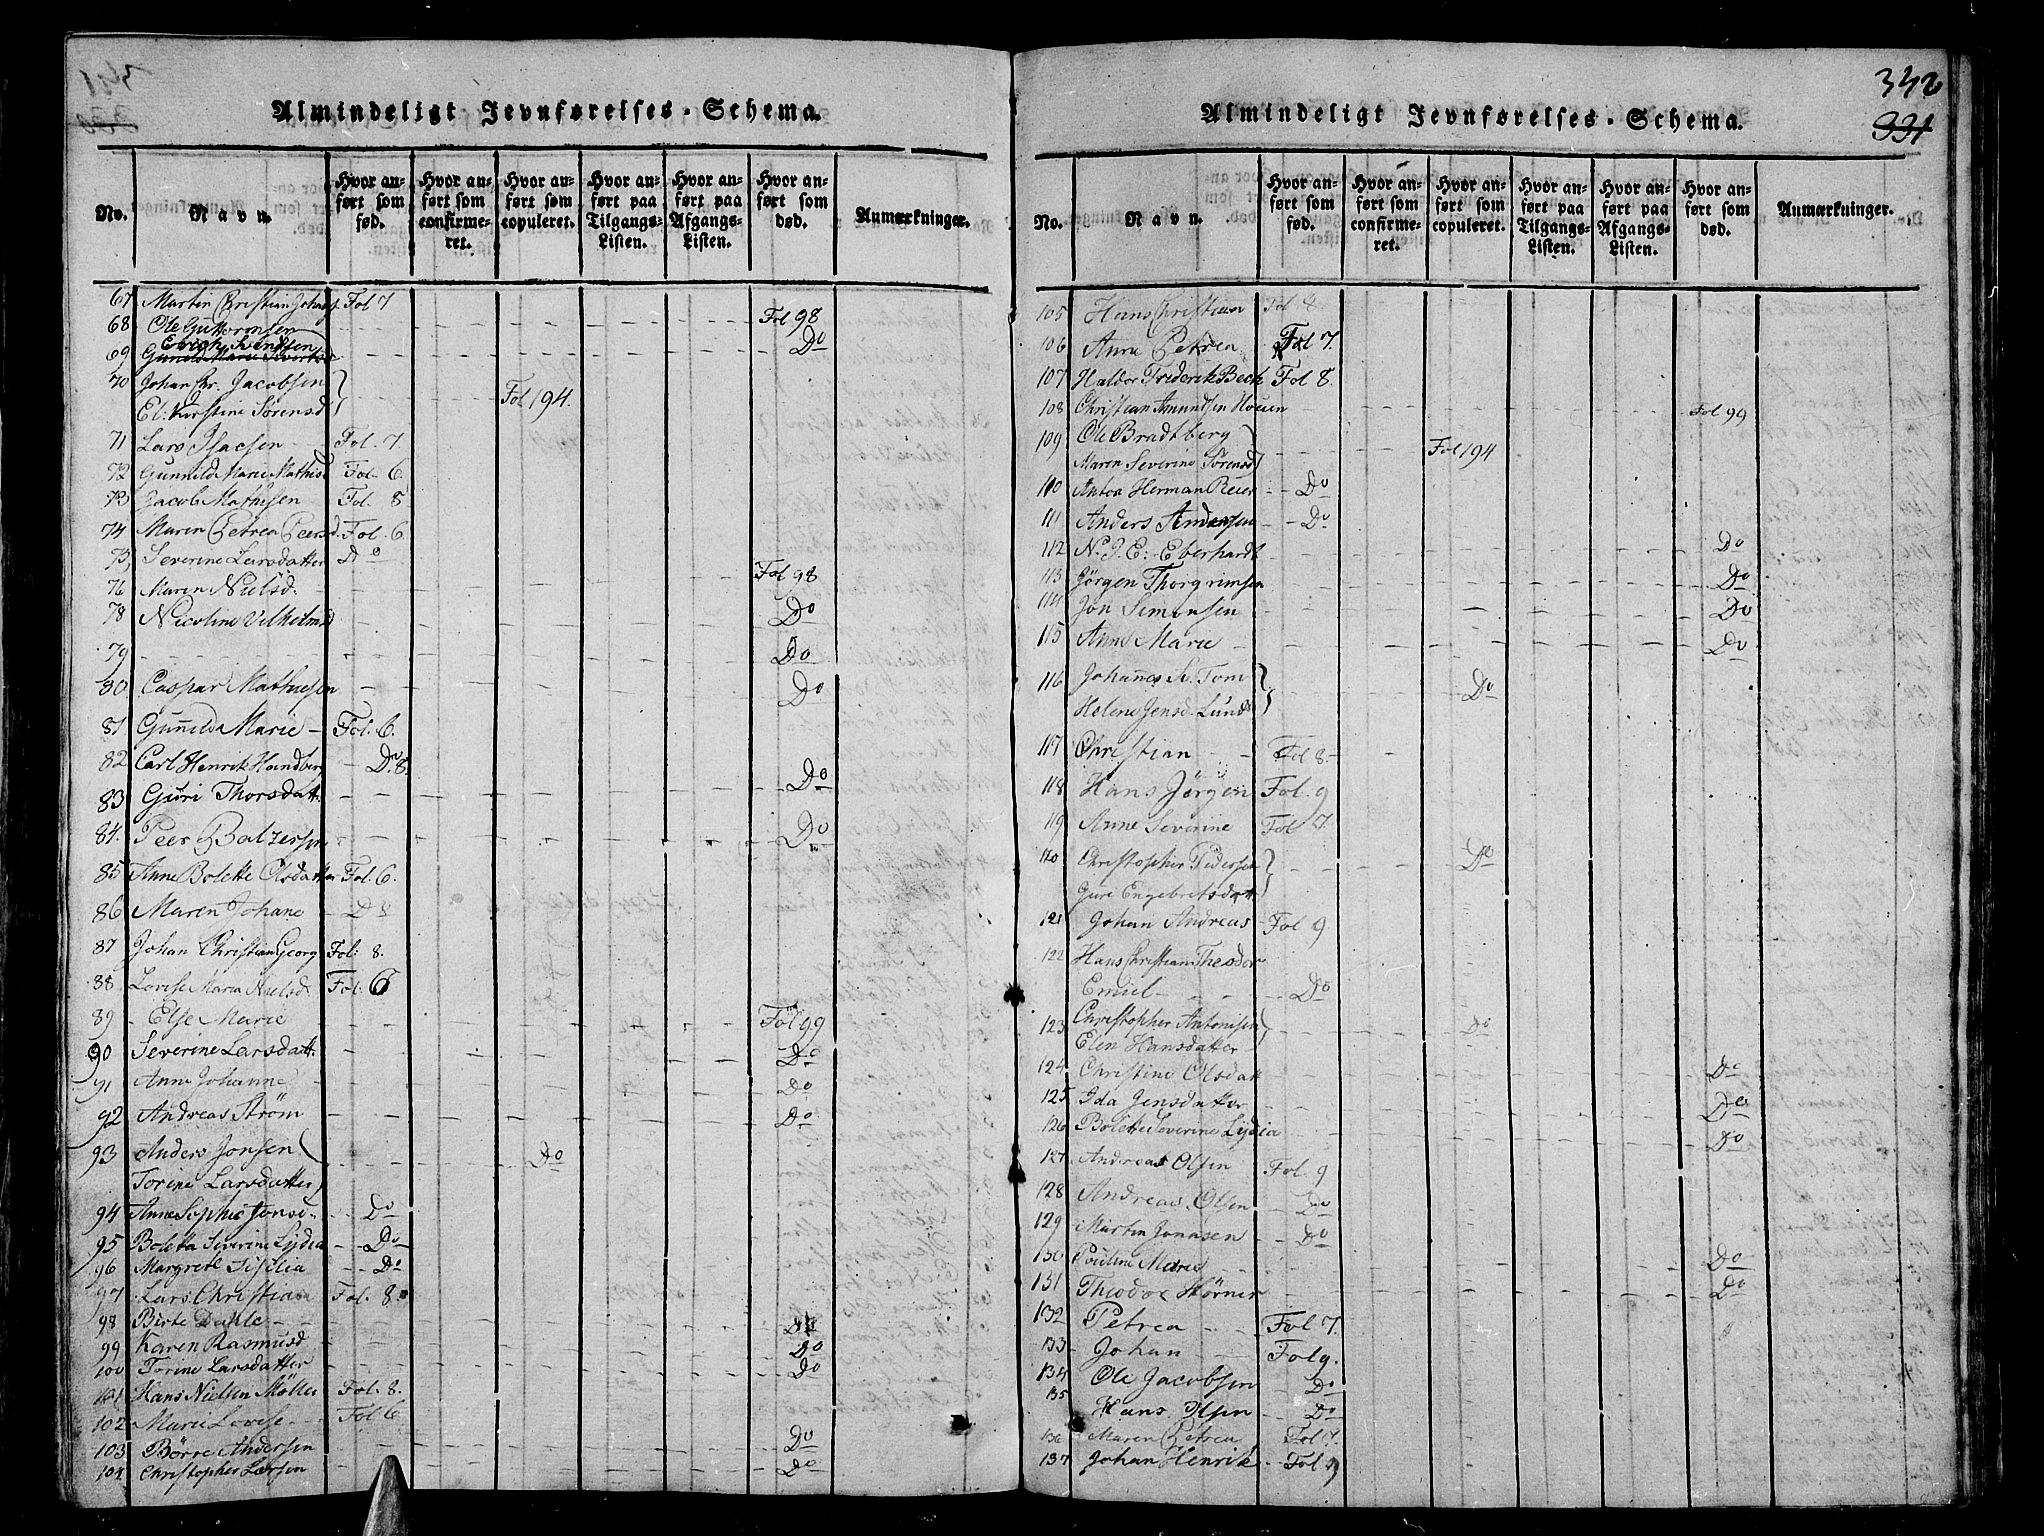 Almindeligt Jevnførelses-Schema.
No. Navn. Hvor anført som fød. Hvor anført som confirmeret. Hvor anført som copuleret. Hvor anført paa Tilgangs-Listen. Hvor anført paa Afgangs-Listen. Hvor anført som død. Anmærkninger.
67 Martin Christian Johans. Fol 7
68 Ole Guttormsen Fol 98
Erich Svendsen
69 Do
70 Johan Chr. Jacobsen
El: Kirstine Sørensd Fol 194.
71 Lars Isacsen Fol. 7
72 Gunnild Marie Mathisd Fol. 6
73 Jacob Mathisen Fol. 8
74 Maren Petrea Peersd. Fol. 6
75, Severine Larsdatter Do
76 Maren Nielsd. Fol 98
78 Nicoline Vilhelmsd Do
79 Do
80 Caspar Mathiesen Do
81 Gunnild Marie Fol. 6.
82 Carl Henrik Handberg Do 8.
83 Guri Thorsdatt. Do
84. Peer Baltzersen Do
85 Anne Bolette Olsdatter Fol. 6.
86 Maren Johane D 8
87 Johan Christian Georg Fol: 8.
88 Lovise Maria Nielsd. Fol. 6
89 Else Marie Fol 99
90 Severine Larsdatt. Do
91 Anne Johanne Do
92 Andreas Strøm Do
93 Anders Jonsen
Torine Larsdatter Do
94 Anne Sophie Jonsd. Do
95 Boletta Severine Lydia Do
96 Margrete Sisilia Do
97 Lars Christian Fol. 8.
98 Birte Dahle Do
99 Karen Rasmusd Do
100 Torine Larsdatter Do
101 Hans Nielsen Møller Fol. 8.
102 Marie Lovise Fol 6
103 Børre Andersen Do
104 Christopher Larsen Do
342
331
Almindeligt Jevnførelses-Schema.
No. Navn. Hvor anført som fød. Hvor anført som confirmeret. Hvor anført som copuleret. Hvor anført paa Tilgangs-Listen. Hvor anført paa Afgangs-Listen. Hvor anført som død. Anmærkninger.
105 Hans Christian Fol
106 Anne Petrea Fol 7.
107 Haldor Friderik Bech Fol 8.
108 Christian Amundsen Houen Fol 99
109 Ole Bradtberg
Maren Severine Sørensd Fol 194
110 Anton Herman Reier Do
111 Anders Andersen Do
112 N. J. E: Eberhardt Do
113 Jörgen Thorgrimsen Do
114 Jon Simonsen Do
115 Anne Marie Do
116 Johannes S. Tom
Helene Jensd. Lunde Do
117 Christian Fol 8
118 Hans Jörgen Fol. 9
119 Anne Severine Fol 7.
120 Christopher Pedersen
Gure Engebretsdatt Do
121 Johan Andreas Fol 9
122 Hans Christian Theodor
Emiel Do
123 Christopher Antonisen
Elen Hansdatter Do
124 Christine Olsdatt Do
125 Ida Jensdatter Do
126 Bolette Severine Lydia Do
127. Andreas Olsen Fol. 9
128 Andreas Olsen Do
129 Martin Jonasen Do
130 Pouline Marie Do
131 Theodor Hörner Do
132 Petrea Fol 7.
133 Johan Fol 9.
134 Ole Jacobsen Do
135 Hans Olsen Do
136 Maren Petrea Fol 7.
137 Johan Henrik Fol 9